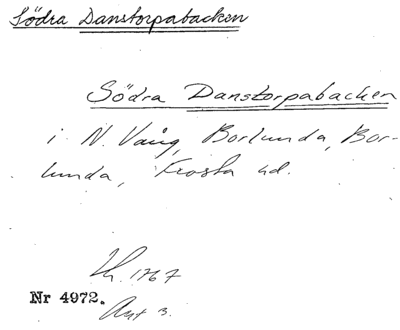 Södra Danstorpabacken
Södra Danstorpabacken
i N. Vång, Borlunda, Bor-
lunda, Frosta hd.
Lh. 1767
Nr 4972.
Ant 3.